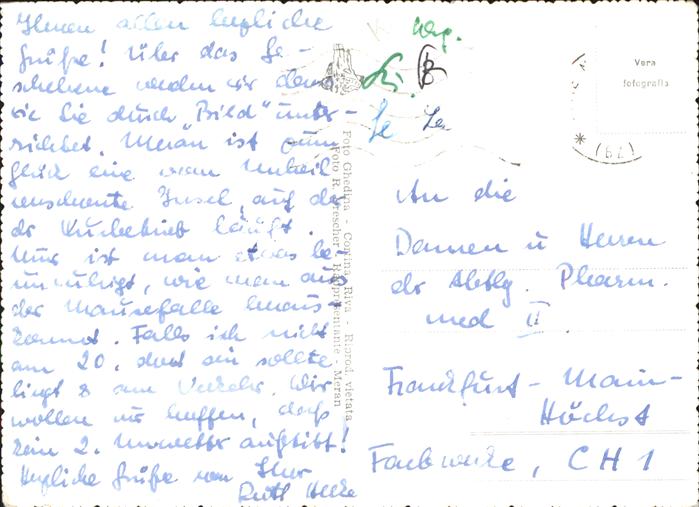 Ihnen allen herzliche
Grüße! Über das Ge-
schehene werden wir dem
wie Sie durch „Bild" unter-
richtet. Meran ist zum
Glück eine vom Unheil
verschonte Insel, auf der
der Kurbetrieb läuft.
Nur ist man etwas be-
unruhigt, wie man aus
der Mausefalle heraus-
kommt. Falls ich nicht
am 20. dort sein sollte
liegt es am Verkehr. Wir
wollen nur hoffen, daß
kein 2. Unwetter auftritt!
Herzliche Grüße von Ihrer
Ruth
Foto Ghedina - Cortina, Riva - Riprod. vietata
Foto R. Drescher - Rappresentante - Meran
Vera
fotografia
An die
Damen u Herren
der Abtlg. Pharm.
med II.
Frankfurt-Main-
Höchst
Farbwerke, CH 1